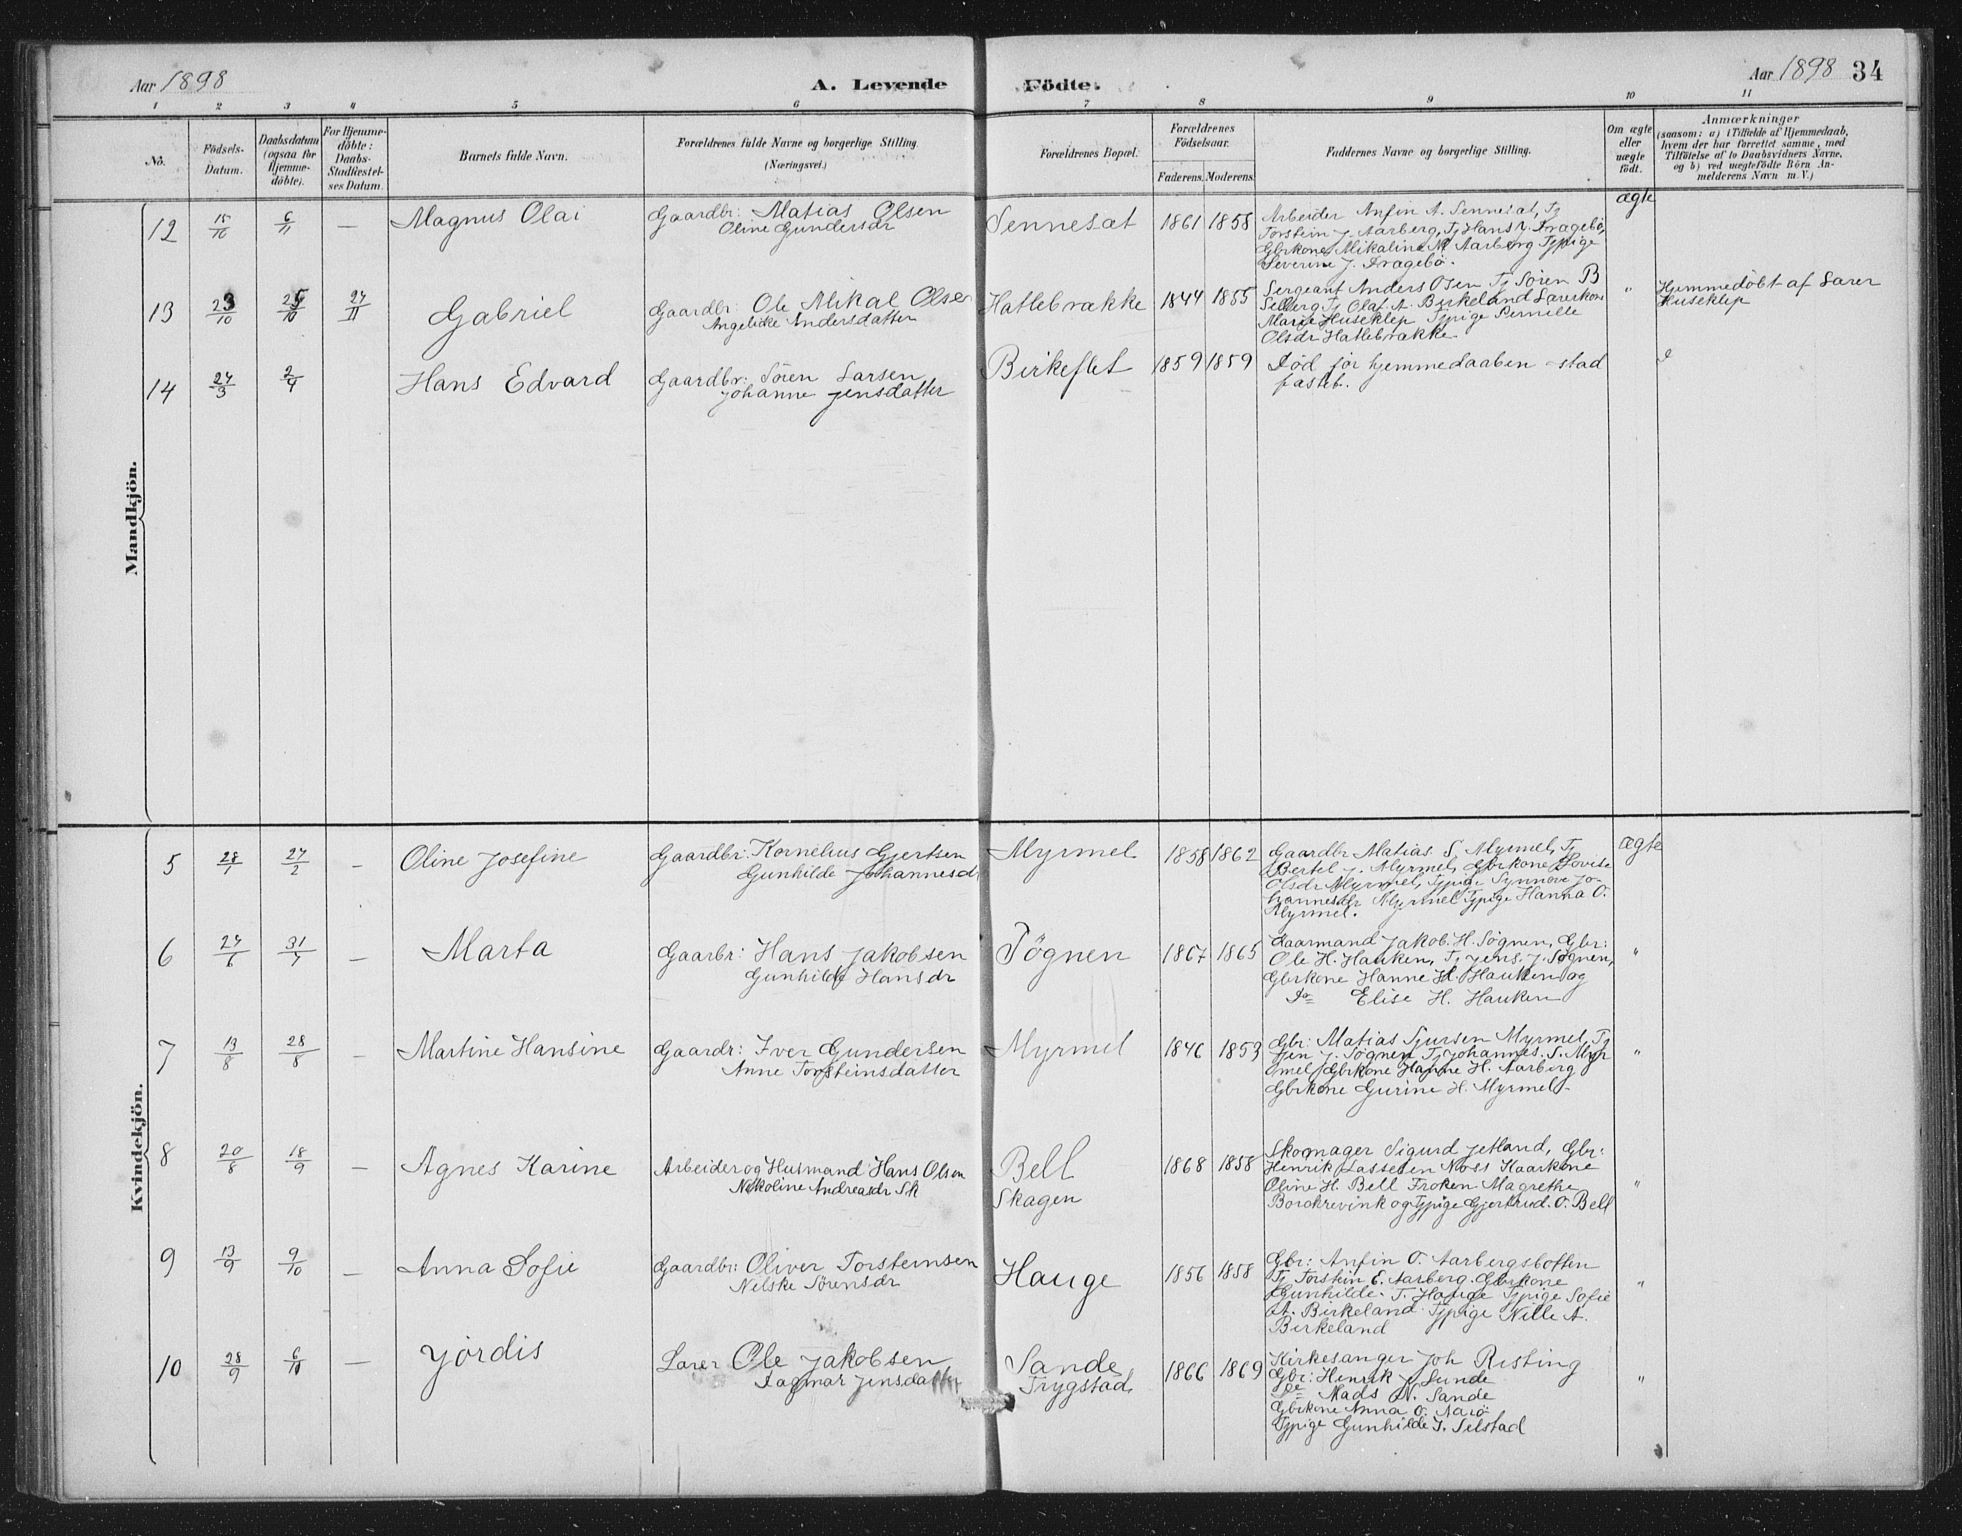 Aar 1898
A. Levende
Födte.
Aar 1898 34
1 2 3 4 5 6 7 8 9 10 11
No.
Födsels-
Datum.
Daabsdatum
(ogsaa for
Hjemme-
döbte).
For Hjemme-
döbte:
Daabs-
Stadfæstel-
ses Datum.
Barnets fulde Navn.
Forældrenes fulde Navne og borgerlige Stilling
(Næringsvei.)
Forældrenes Bopæl.
Forældrenes
Födselsaar.
Faderens. Moderens.
Faddernes Navne og borgerlige Stilling.
Om ægte
eller
uægte
födt.
Anmærkninger
(saasom: a) i Tilfælde af Hjemmedaab,
hvem der har forrettet samme, med
Tilföielse af to Daabsvidners Navne,
og b) ved uægtefödte Börn An-
melderens Navn m. V.)
Mandkjön.
12 15/10 6/11 — Magnus Olai
Gaardbr: Matias Olsen
Oline Gundersdr
Sennesæt 1861 1858
Arbeider Anfin A. Sennesæt, Tj
Torstein J. Aarberg, Tj Hans J. Dragebö,
Gbrkone Mikaline M Aarberg Tjpige
Severine J. Dragebö.
ægte
13 23/10 25/10 27/11 Gabriel
Gaardbr: Ole Mikal Olsen
Angelike Andersdatter
Hatlebrække 1844 1855
Sergeant Anders Osen Tj Sören B
Selberg Tj Olaf A. Birkeland Lærerkone
Marie Huseklep Tjpige Pernille
Olsdr Hatlebrække
"
Hjemmedöbt af Lærer
Huseklep
14 27/3 2/4 Hans Edvard
Gaardbr: Sören Larsen
Johanne Jensdatter
Birkeflet 1859 1859
Död för hjemmedaaben stad
fæstet.
Kvindekjön.
5 28/1 27/2 — Oline Josefine
Gaardbr: Kornelius Gjertsen
Gunhilde Johannesdr
Myrmel 1858 1862
Gaardbr Matias S. Myrmel, Tj
Bertel J. Myrmel, Gbrkone Lovise
Olsdr Myrmel, Tjpige Synnöve Jo-
hannesdr Myrmel Tjpige Hanna O.
Myrmel.
ægte
6 27/6 31/7 — Marta
Gaarbr: Hans Jakobsen
Gunhilde Hansdr
Tögnen 1867 1865
Kaarmand Jakob H. Sögnen, Gbr:
Ole H. Hauken, Tj Jens J. Sögnen,
Gbrkone Hanne H. Hauken og
Do Elise H. Hauken
"
7 13/8 28/8 — Martine Hansine
Gaardr: Iver Gundersen
Anne Torsteinsdatter
Myrmel 1846 1853
Gbr: Matias Sjursen Myrmel, Tj
Jen J. Sögnen Tj Johannes S. Myr
mel Gbrkone Hanne H. Aarberg
Gbrkone Gurine H. Myrmel
"
8 20/8 18/9 — Agnes Karine
Arbeider og Husmand Hans Olsen
Nikoline Andreasdr Sk
Bell
Skagen
1868 1858
Skomager Sigurd Jetland, Gbr:
Henrik Lassesen Noss Kaarkone
Oline H. Bell Fröken Magrethe
Borchrevink og Tjpige Gjertrud. O. Bell
"
9 13/9 9/10 — Anna Sofie
Gaardbr: Oliver Torsteinsen
Nilske Sörensdr
Hauge 1856 1858
Gbr: Anfin O. Aarbergsbotten
Tj Torstein E. Aarberg. Gbrkone
Gunhilde. T. Hauge Tjpige Sofie
A. Birkeland Tjpige Nille A.
Birkeland
"
10 28/9 6/10 — Yördis
Lærer Ole Jakobsen
Dagmar Jensdatter
Sande
Trygstad
1866 1869
Kirkesanger Joh Risting
Gbr: Henrik J. Sunde
Do Mads N. Sande
Gbrkone Anna O. Aarö
Tjpige Gunhilde J. Selstad
"